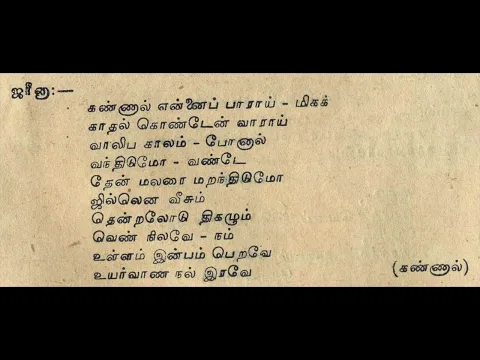 ஜரீனா:—
கண்ணால் என்னைப் பாராய் - மிகக்
காதல் கொண்டேன் வாராய்
வாலிப காலம் - போனால்
வந்திடுமோ - வண்டே
தேன் மலரை மறந்திடுமோ
ஜில்லென வீசும்
தென்றலோடு திகழும்
வெண் நிலவே - நம்
உள்ளம் இன்பம் பெறவே
உயர்வாண நல் இரவே (கண்ணால்)